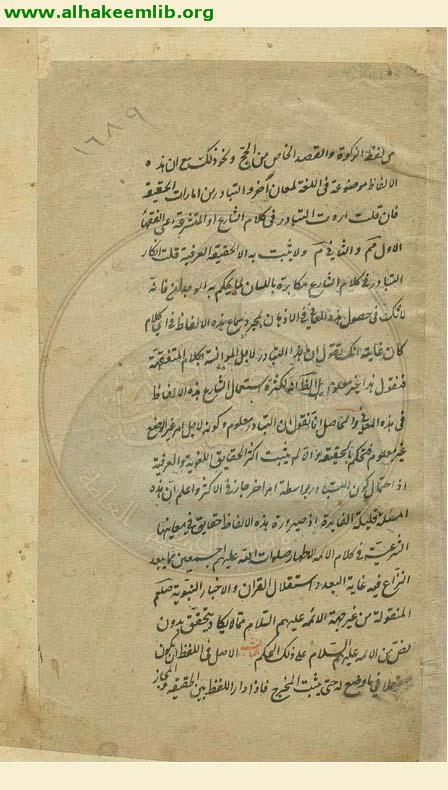 www.alhakeemlib.org
١٦٨٩
من لفظ الزكوة والقصد الخاص من الحج ونحو ذلك مع ان هذه
الالفاظ موضوعة فى اللغة لمعان اخر والتبادر من امارات الحقيقة
فان قلت اردت التبادر فى كلام الشارع او المتشرعة اعنى الفقهاء
الاول مم والثانى مم ولا يثبت به الا الحقيقة العرفية قلت انكار
التبادر فى كلام الشارع مكابرة باللسان لما يحكم به الوجدان فانه
لا شك فى حصول هذه المعانى فى الاذهان بمجرد سماع هذه الالفاظ فى اى كلام
كان غاية انك تقول ان هذا التبادر لاجل المؤانسة بكلام المتفقهة
فنقول هذا غير معلوم بل الظ انه لكثرة استعمال الشارع هذه الالفاظ
فى هذه المعانى والحاصل انا نقول ان التبادر معلوم وكونه لاجل امر غير الوضع
غير معلوم فنحكم بالحقيقة والا لم يثبت اكثر الحقايق اللغوية والعرفية
اذ احتمال كون التبادر بواسطة امر اخر جار فى الاكثر واعلم ان هذه
المسئلة قليلة الفايدة اذ صيرورة هذه الالفاظ حقايق فى معانيها
الشرعية فى كلام الائمة الاطهار صلوات الله عليهم اجمعين مما يبعد
النزاع فيه غاية البعد واستقلال القران والاخبار النبوية صلعم
المنقولة من غير جهة الائمة عليهم السلام مما لا يكاد يتحقق بدون
نص من الائمة عليهم السلام على ذلك الحكم الاصل فى اللفظ ان يكون
مستعملا فيما وضع له حتى يثبت المخرج فاذا دار اللفظ بين الحقيقة والمجاز